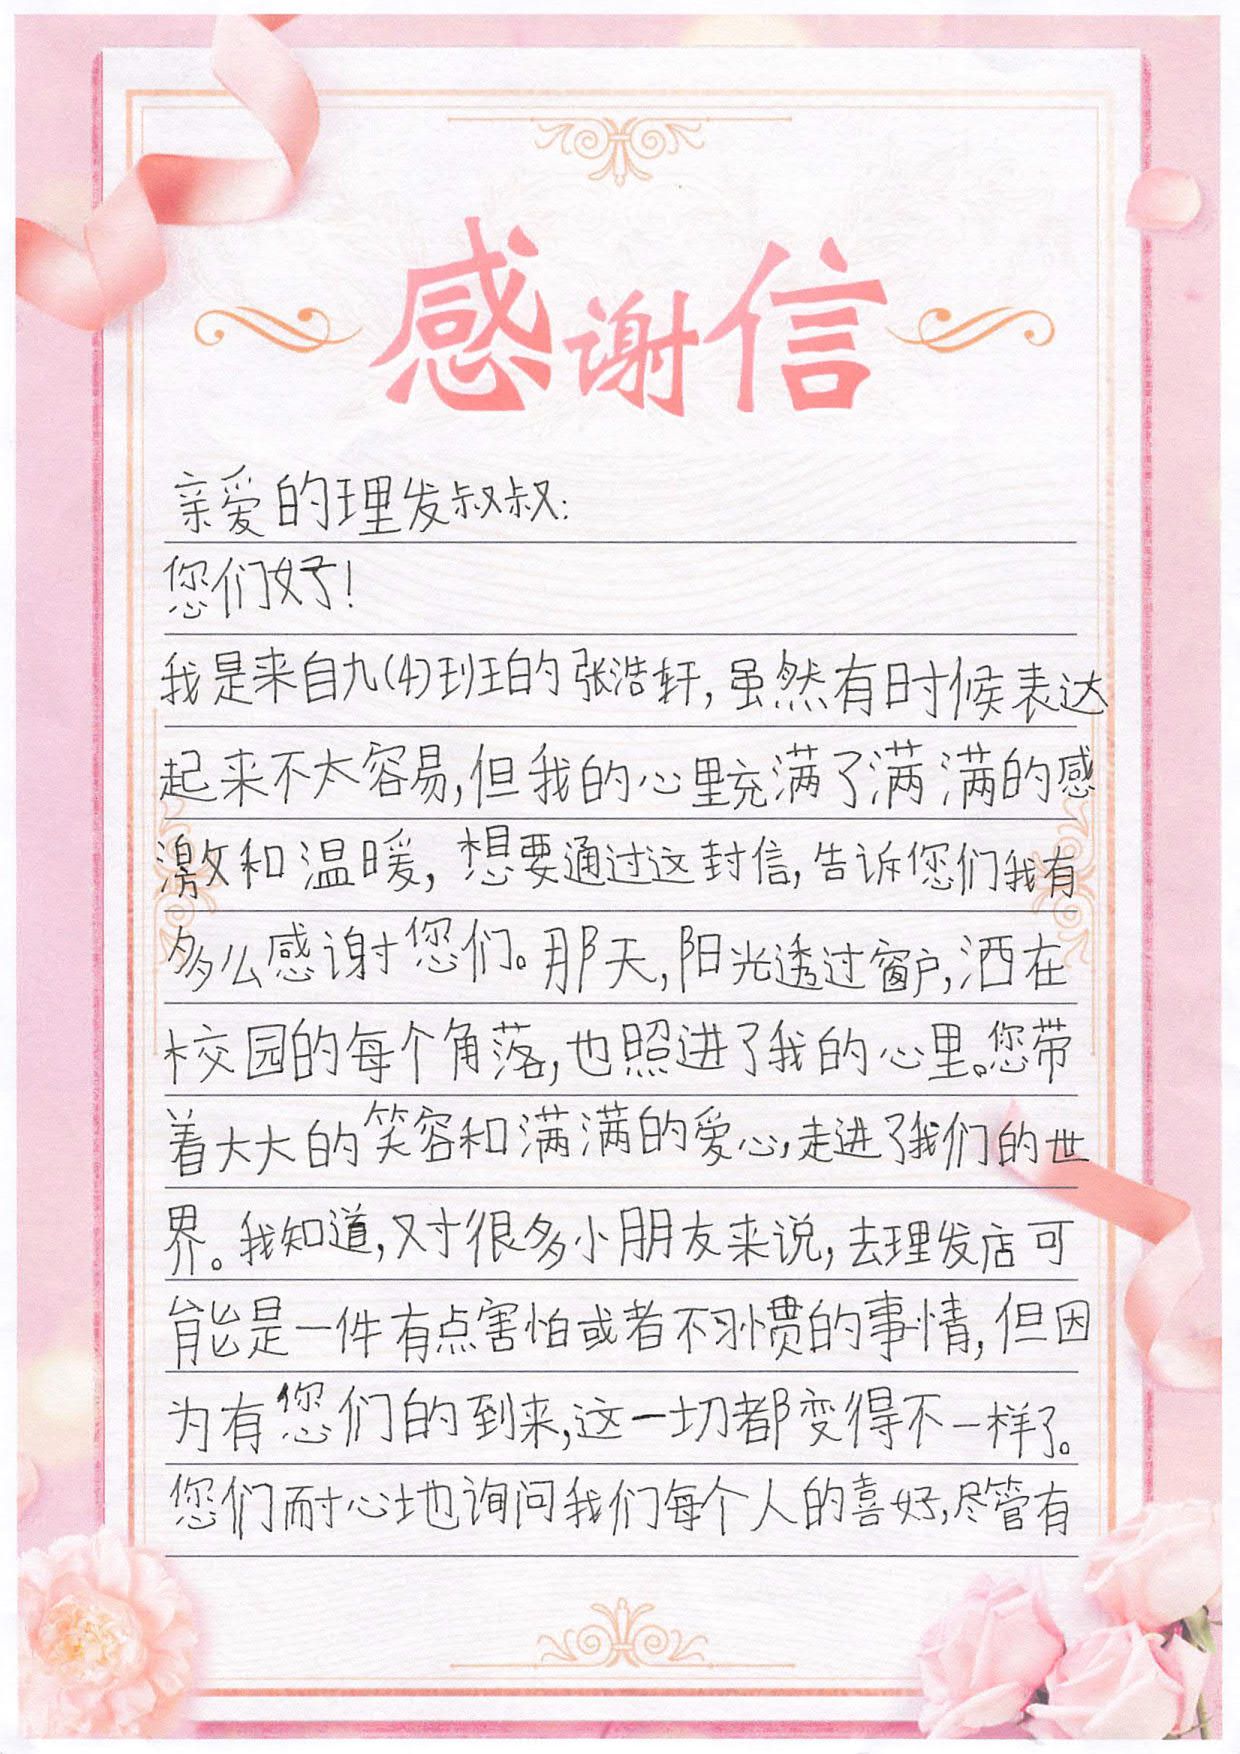 感谢信
亲爱的理发叔叔:
您们好!
我是来自九(4)班的张浩轩,虽然有时候表达
起来不太容易,但我的心里充满了满满的感
激和温暖,想要通过这封信,告诉您们我有
多么感谢您们。那天,阳光透过窗户,洒在
校园的每个角落,也照进了我的心里。您带
着大大的笑容和满满的爱心,走进了我们的世
界。我知道,对很多小朋友来说,去理发店可
能是一件有点害怕或者不习惯的事情,但因
为有您们的到来,这一切都变得不一样了。
您们耐心地询问我们每个人的喜好,尽管有